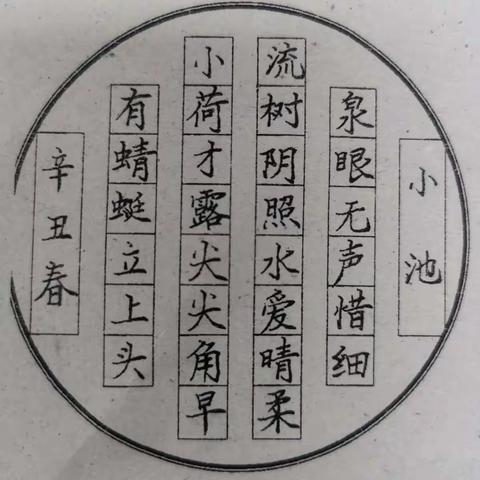 小池
泉眼无声惜细
流树阴照水爱晴柔
小荷才露尖尖角早
有蜻蜓立上头
辛丑春